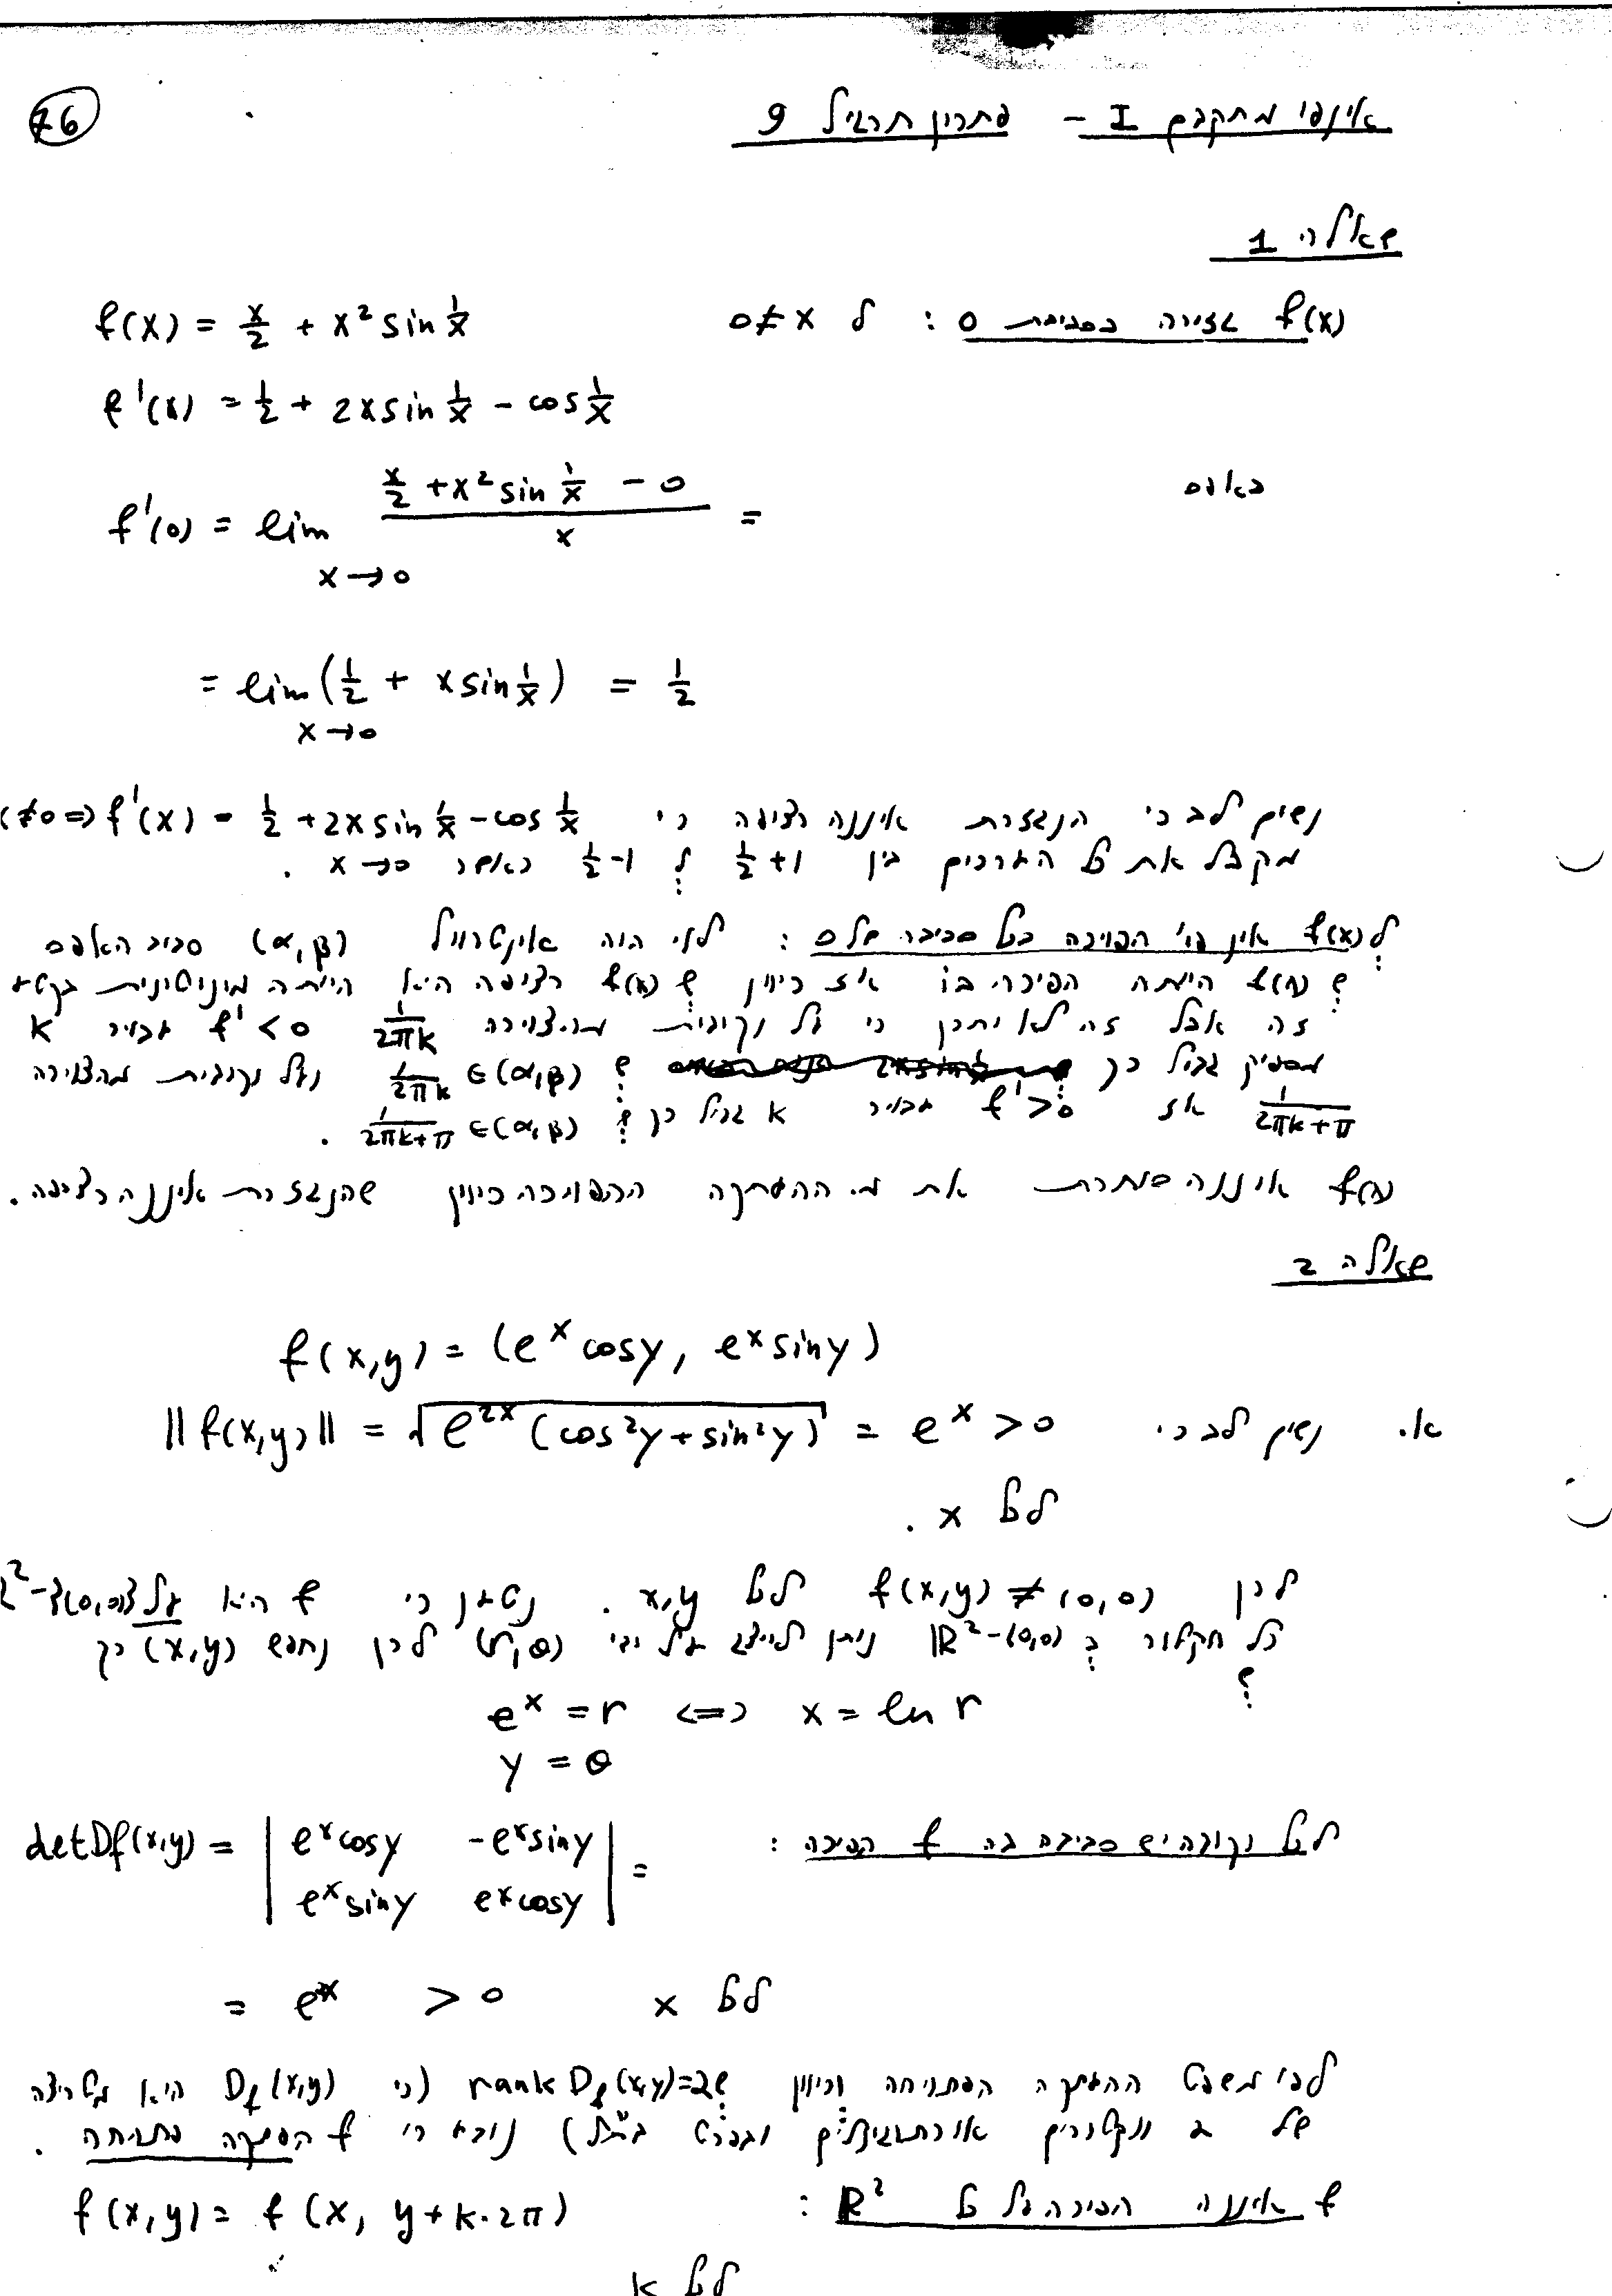 76
אינפי מתקדם I - פתרון תרגיל 9
שאלה 1
f(x) גזירה בסביבת 0 : ל x≠0 f(x) = x/2 + x² sin 1/x
f'(x) = 1/2 + 2x sin 1/x - cos 1/x
באפס f'(0) = lim x→0 (x/2 + x² sin 1/x - 0)/x =
= lim x→0 (1/2 + x sin 1/x) = 1/2
נשים לב כי הנגזרת איננה רציפה כי f'(x) = 1/2 + 2x sin 1/x - cos 1/x (≠0 ⇒
מקבל את כל הערכים בין 1/2+1 ל 1/2-1 כאשר x→0 .
ל f(x) אין פו' הפוכה בכל סביבה של 0 : לוּ היה אינטרוול (α,β) סביב האפס
ש f(x) היתה הפיכה בו אז כיוון ש f(x) רציפה היא היתה מונוטונית בקטע
זה אבל זה לא יתכן כי על נקודות מהצורה 1/2πk f'<0 עבור k
מספיק גדול כך ש 1/2πk ∈(α,β) ועל נקודות מהצורה
1/2πk+π אז f'>0 עבור k גדול כך ש 1/2πk+π ∈(α,β) .
f(x) איננה סותרת את מ. ההעתקה ההפוכה כיוון שהנגזרת איננה רציפה .
שאלה 2
f(x,y) = (e^x cosy, e^x siny)
א. נשים לב כי ||f(x,y)|| = √(e^2x (cos²y+sin²y)) = e^x > 0
לכל x .
לכן f(x,y) ≠ (0,0) לכל x,y . נטען כי f היא על R²-{(0,0)}
כל וקטור ב R²-(0,0) ניתן לייצג על ידי (r,θ) לכן נחפש (x,y) כך
ש
e^x = r ⟺ x = ln r
y = θ
לכל נקודה יש סביבה בה f הפיכה : detDf(x,y) = | e^x cosy -e^x siny | =
| e^x siny e^x cosy |
= e^2x > 0 לכל x
לפי משפט ההעתקה הפתוחה וכיוון ש rank D_f(x,y)=2 (כי D_f(x,y) היא מטריצה
של 2 וקטורים אורתוגונליים ובפרט בת"ל) נובע כי f העתקה פתוחה .
f איננה הפיכה על כל R² : f(x,y) = f(x, y+k·2π)
לכל k